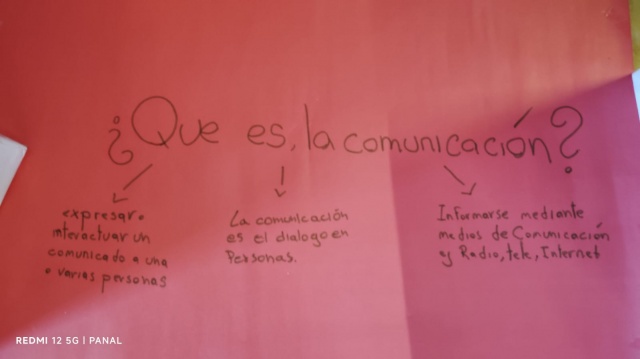 ¿Que es, la comunicación?
expresar o
interactuar un
comunicado a una
o varias personas
La comunicación
es el dialogo en
Personas.
Informarse mediante
medios de Comunicación
y Radio, tele, Internet
REDMI 12 5G | PANAL